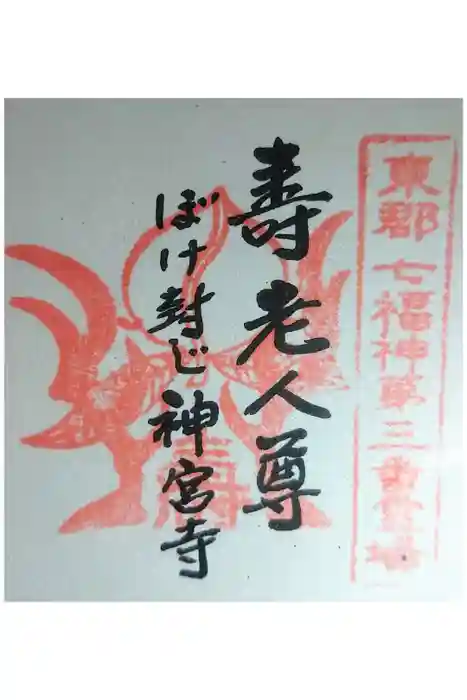 東郡七福神第三番霊場
壽老人尊
ぼけ封じ神宮寺
壽